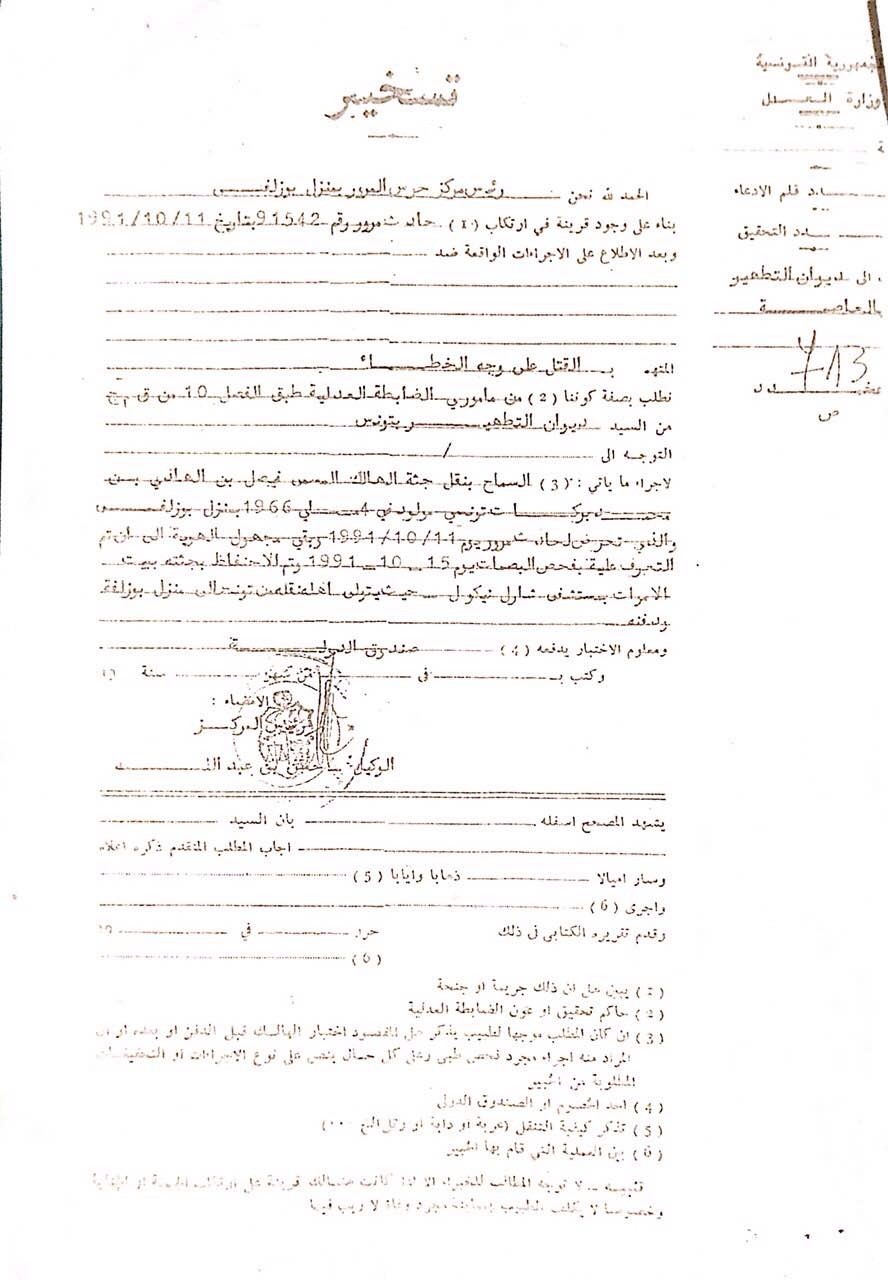 الجمهورية التونسية
وزارة العدل
تسخير
عدد قلم الادعاء
عدد التحقيق
الى ديوان التطهير
بالعاصمة
713
عدد
ص
الحمد لله نحن رئيس مركز حرس المرور بمنزل بوزلفـــى
بناء على وجود قرينة في ارتكاب (1) حادث مرور رقم 91542 بتاريخ 1991/10/11
وبعد الاطلاع على الاجراءات الواقعة ضد
المتهم بـ القتل على وجه الخطــــأ
نطلب بصفة كوننا (2) من ماموري الضابطة العدلية طبق الفصل 10 من ق م ج
من السيد ديوان التطهيـــر بتونس
التوجه الى /
لاجراء ما ياتي : (3) السماح بنقل جثة الهالك المسمى فيصل بن الهادي بـن
محمد بركـــات تونسي مولود في 4 1966 بمنزل بوزلفـــى
والذي تعرض لحادث مرور يوم 1991/10/11 وبقي مجهول الهوية الى ان تم
التعرف عليه بفحص البصمات يوم 15 _ 10 _ 1991 وتم الاحتفاظ بجثته ببيت
الاموات بمستشفى شارل نيكول حيث يتولى اهله نقله من تونس الى منزل بوزلفة
ودفنه
ومعلوم الاختبار يدفعه (4) صندوق الدولـــة
وكتب بـ في من شهر سنة 19
الامضاء :
رئيس المركـــز
الوكيل: بن عبد
يشهد المصحح اسفله بان السيد
اجاب المطلب المتقدم ذكره اعلاه
وسار اميالا ذهابا وايابا (5)
واجرى (6)
وقدم تقريره الكتابي في ذلك حرر في 19
(6)
(1) يبين هل ان ذلك جريمة او جنحة
(2) حاكم تحقيق او عون الضابطة العدلية
(3) ان كان المطلب موجها لطبيب يذكر هل المقصود اختبار الهالك قبل الدفن او بعده او ان
المراد منه اجراء مجرد فحص طبي وعلى كل حال ينص على نوع الاجراءات او التحقيقات
المطلوبة من الخبير
(4) احد الخصوم او الصندوق الدولي
(5) تذكر كيفية التنقل (عربة او دابة او رتل الخ ...)
(6) بين العملية التي قام بها الخبير
تنبيه _ لا توجه المطالب للخبراء الا اذا كانت هنالك قرينة على ارتكاب الجنحة او الجناية
وخصوصا لا يكلف الطبيب بمعاينة مجرد وفاة لا ريب فيها